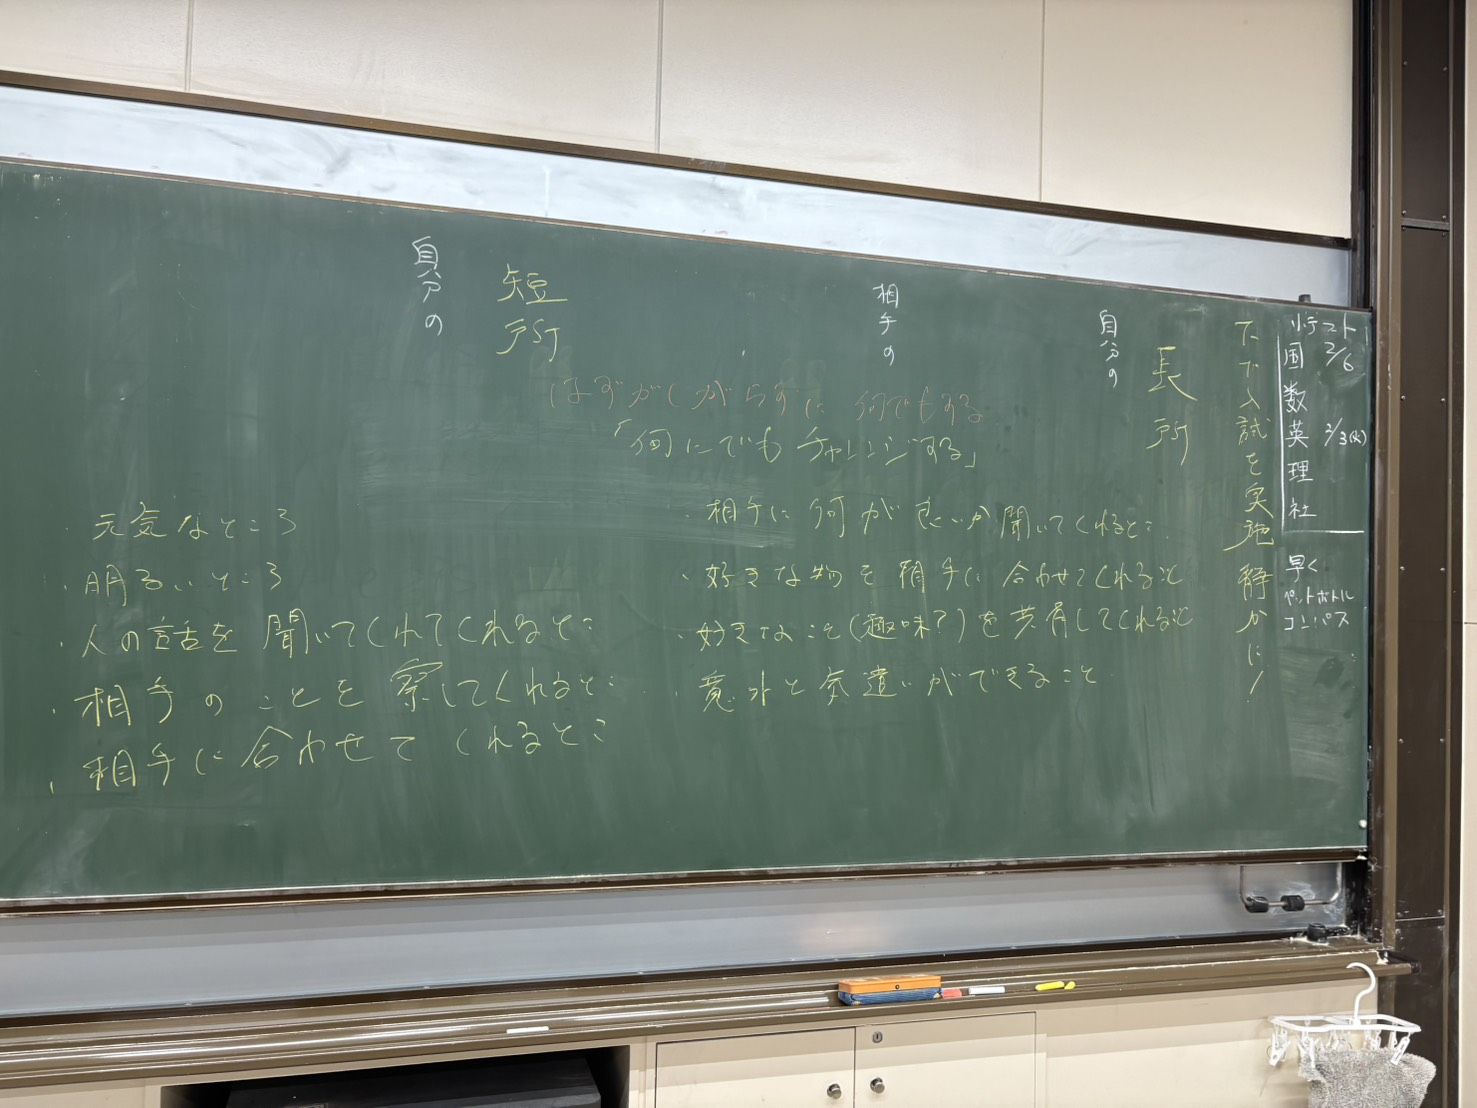 小テスト
国 2/6
数
英 2/3(火)
理
社
早く
ペットボトル
コンパス
下で入試を実施 静かに!
長所
自分の
相手の
短所
自分の
はずかしがらずに 何でもする
「何にでもチャレンジする」
・相手に何が良いか聞いてくれるとこ
・好きな物を相手に合わせてくれること
・好きなこと(趣味?)を共有してくれること
・意外と気遣いができること
・元気なところ
・明るいところ
・人の話を聞いてくれてくれるとこ
・相手のことを察してくれるとこ
・相手に合わせてくれるとこ